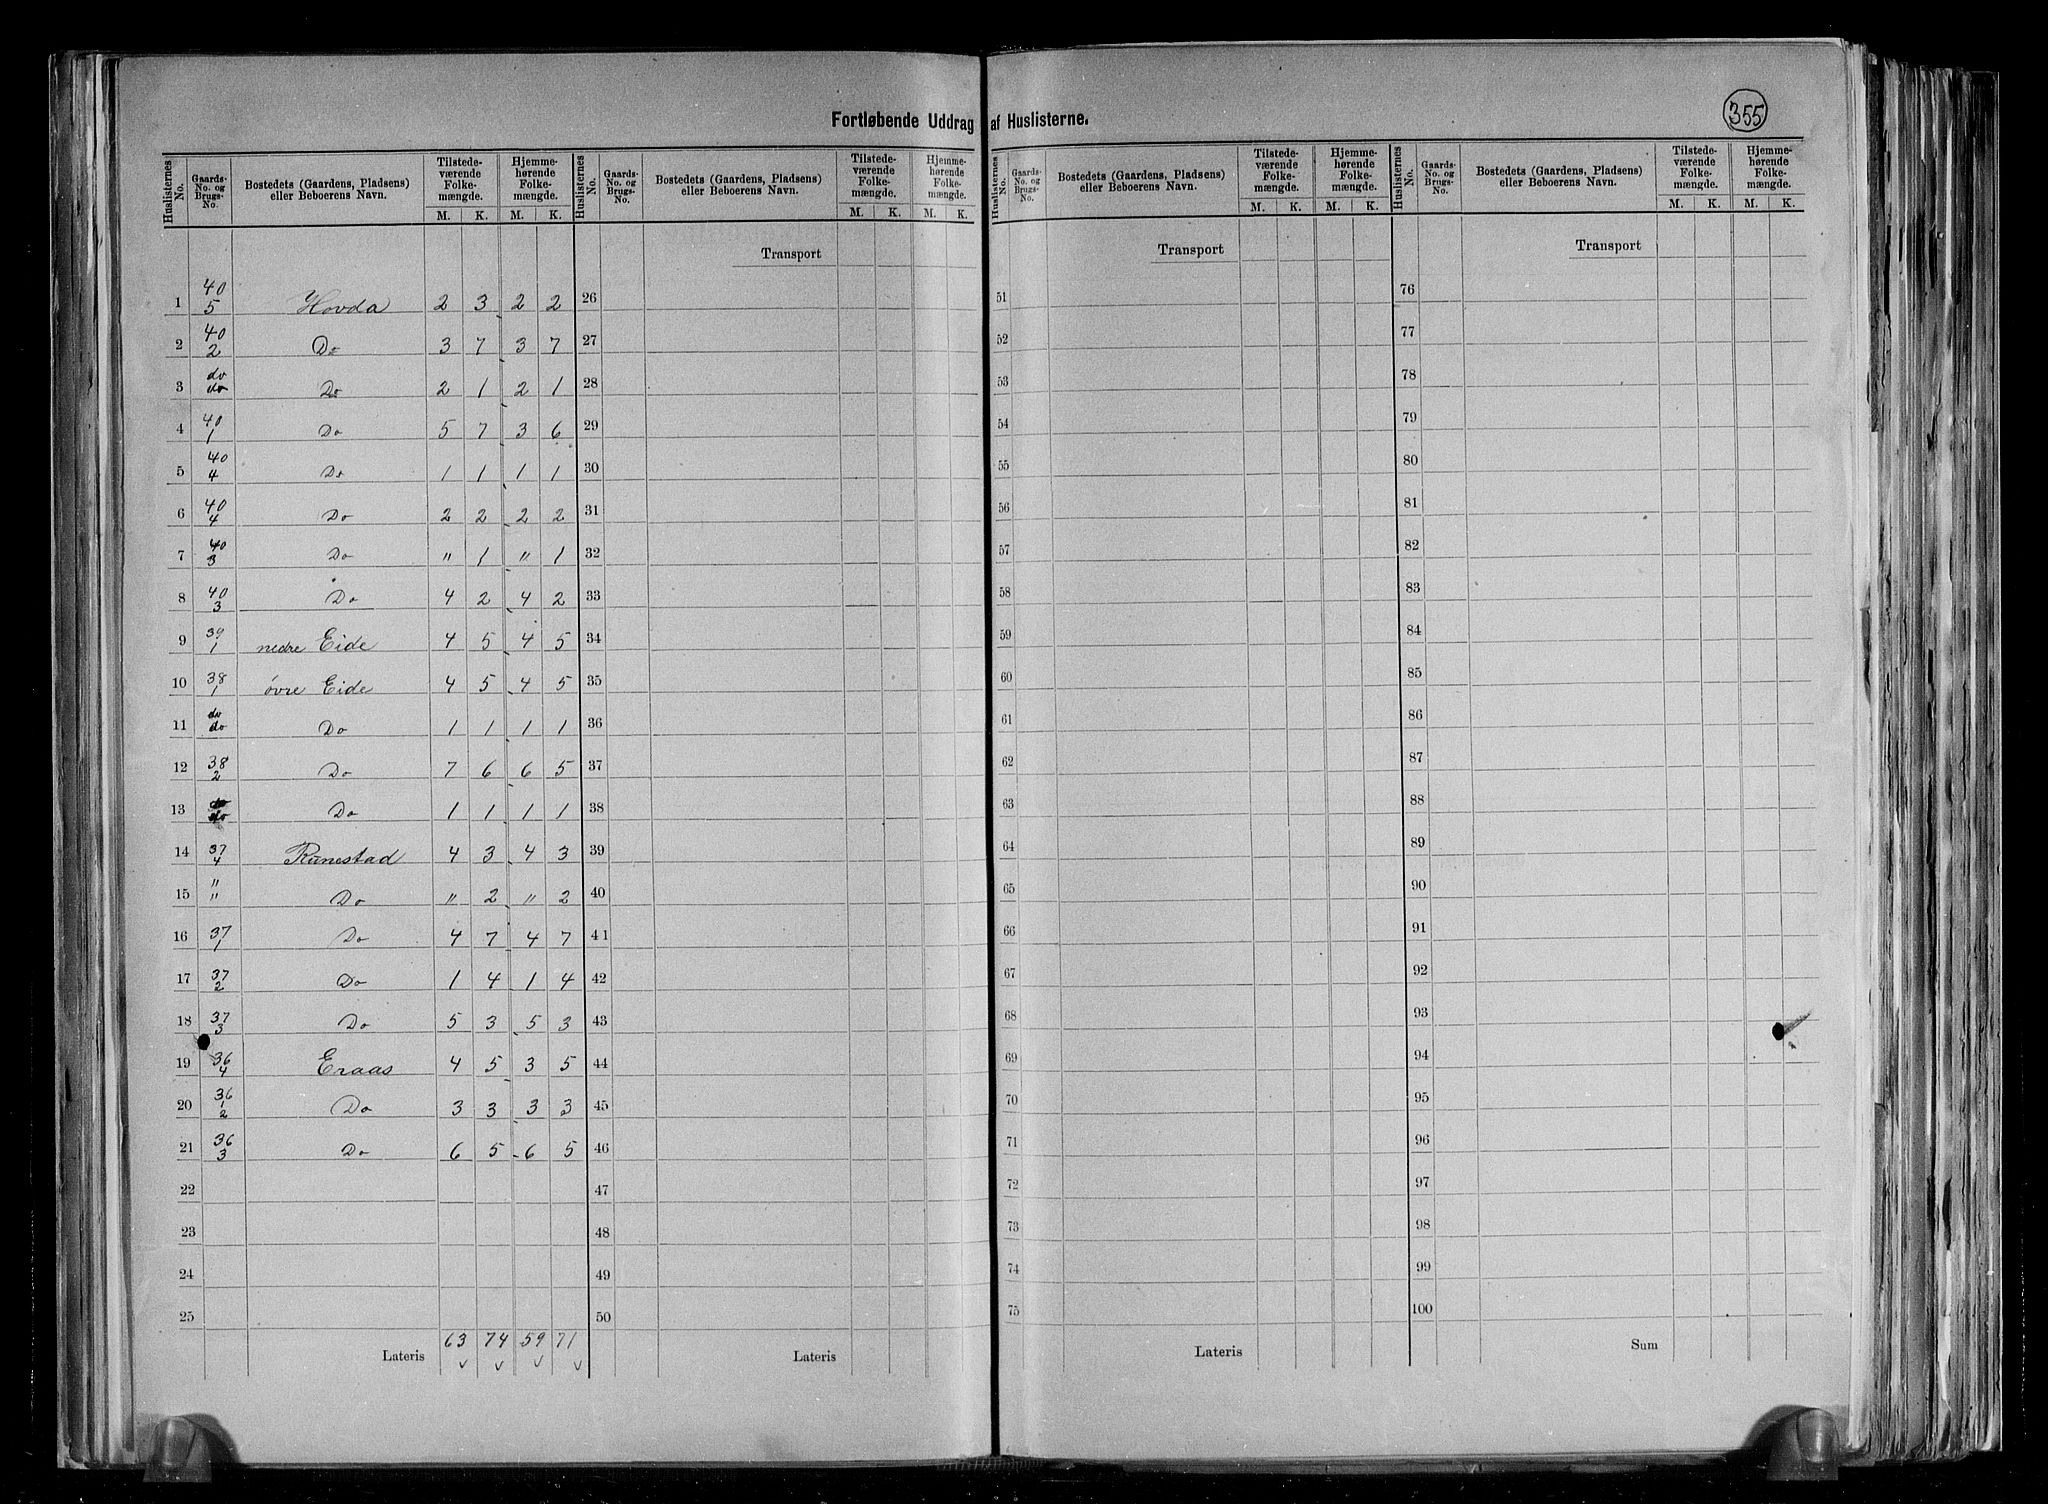 355
Fortløbende Uddrag af Huslisterne.
Huslisternes No. Gaards-No. og Brugs-No. Bostedets (Gaardens, Pladsens) eller Beboerens Navn. Tilstedeværende Folkemængde. M. K. Hjemmehørende Folkemængde. M. K.
Huslisternes No. Gaards-No. og Brugs-No. Bostedets (Gaardens, Pladsens) eller Beboerens Navn. Tilstedeværende Folkemængde. M. K. Hjemmehørende Folkemængde. M. K.
Huslisternes No. Gaards-No. og Brugs-No. Bostedets (Gaardens, Pladsens) eller Beboerens Navn. Tilstedeværende Folkemængde. M. K. Hjemmehørende Folkemængde. M. K.
Huslisternes No. Gaards-No. og Brugs-No. Bostedets (Gaardens, Pladsens) eller Beboerens Navn. Tilstedeværende Folkemængde. M. K. Hjemmehørende Folkemængde. M. K.
Transport Transport Transport
1 40/5 Hovda 2 3 2 2 26 51 76
2 40/2 Do 3 7 3 7 27 52 77
3 do/do Do 2 1 2 1 28 53 78
4 40/1 Do 5 7 3 6 29 54 79
5 40/4 Do 1 1 1 1 30 55 80
6 40/4 Do 2 2 2 2 31 56 81
7 40/3 Do " 1 " 1 32 57 82
8 40/3 Do 4 2 4 2 33 58 83
9 39/1 nedre Eide 4 5 4 5 34 59 84
10 38/1 øvre Eide 4 5 4 5 35 60 85
11 do/do Do 1 1 1 1 36 61 86
12 38/2 Do 7 6 6 5 37 62 87
13 do/do Do 1 1 1 1 38 63 88
14 37/4 Runestad 4 3 4 3 39 64 89
15 "/" Do " 2 " 2 40 65 90
16 37/1 Do 4 7 4 7 41 66 91
17 37/2 Do 1 4 1 4 42 67 92
18 37/3 Do 5 3 5 3 43 68 93
19 36/4 Eraas 4 5 3 5 44 69 94
20 36/1/2 Do 3 3 3 3 45 70 95
21 36/3 Do 6 5 6 5 46 71 96
22 47 72 97
23 48 73 98
24 49 74 99
25 50 75 100
Lateris 63 74 59 71 Lateris Lateris Sum